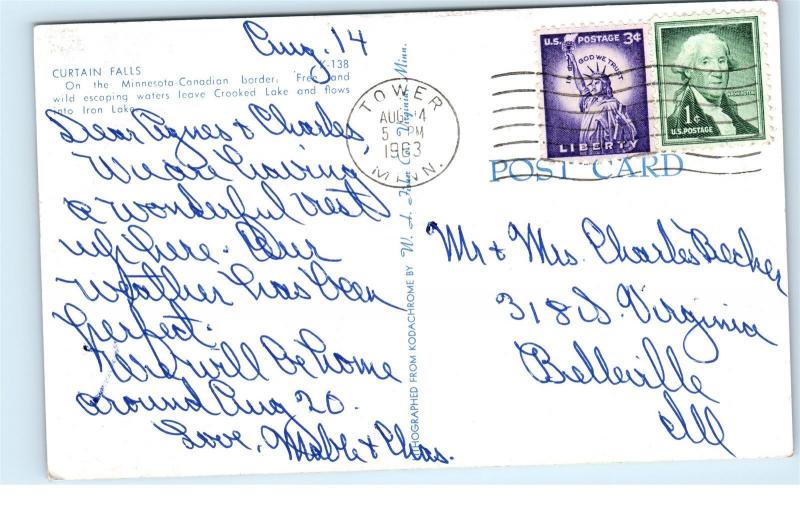 Aug. 14
CURTAIN FALLS K-138
On the Minnesota-Canadian border. Free and
wild escaping waters leave Crooked Lake and flows
into Iron Lake
Dear Agnes & Charles,
We are having
a wonderful rest
up here. Our
weather has been
perfect.
We will be home
around Aug 20.
Love, Mable & Chas.
LITHOGRAPHED FROM KODACHROME BY W. A. Fisher Co., Virginia, Minn.
TOWER
AUG 14
5 PM
1963
MINN.
U.S. POSTAGE 3¢
IN GOD WE TRUST
LIBERTY
WASHINGTON
1¢
U.S. POSTAGE
POST CARD
Mr & Mrs. Charles Becker
318 S. Virginia
Belleville
Ill